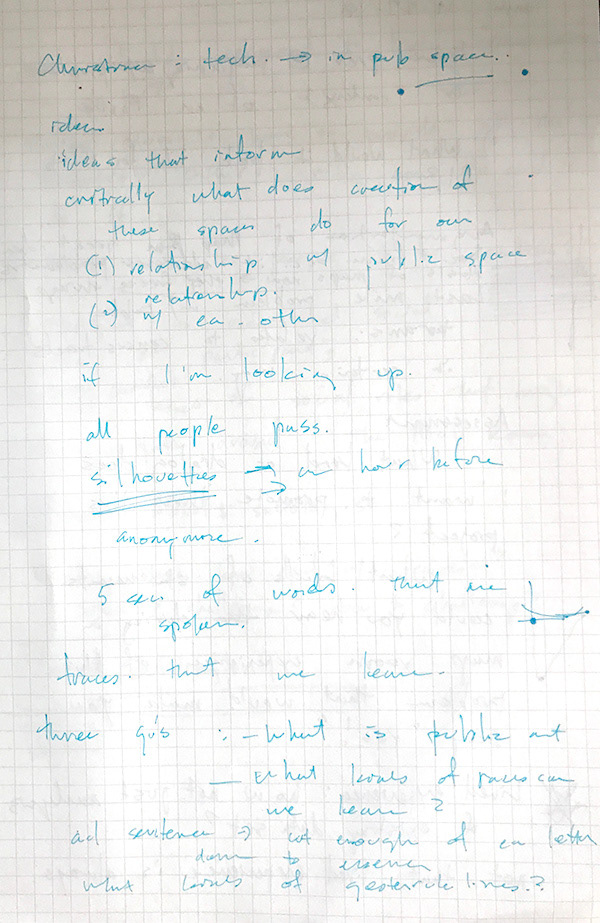 : tech. → in pub space..
ideas that inform
critically what does creation of
these spaces do for our
(1) relationship w/ public space
relationship.
(2) w/ ea. other
if I'm looking up.
all people pass.
silhouettes → an hour before
anonymore.
5 sec of words. that are
spoken.
traces. that we leave.
three q's : - What is public art
— What kinds of can
we leave?
ad sentence → cut enough of ea letter
down to essence
what kinds of lines.?